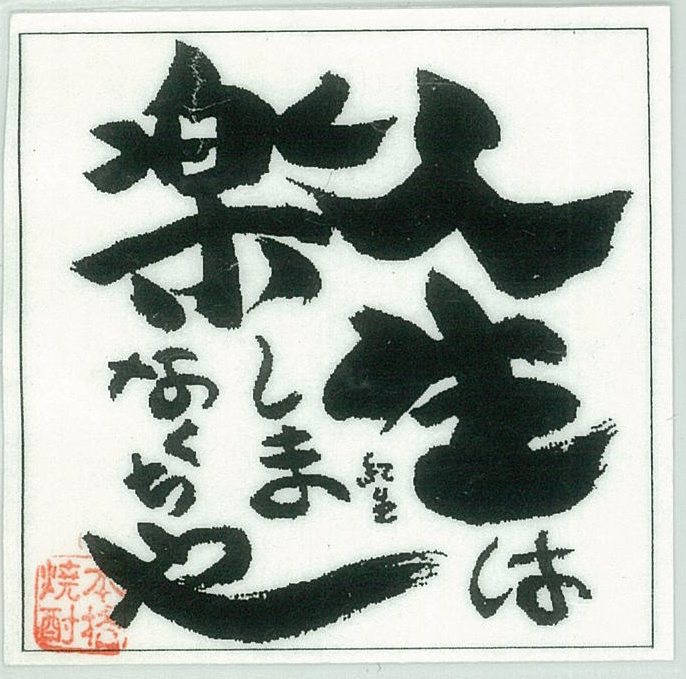 人生は
楽しま
なくちゃ
本格
焼酎